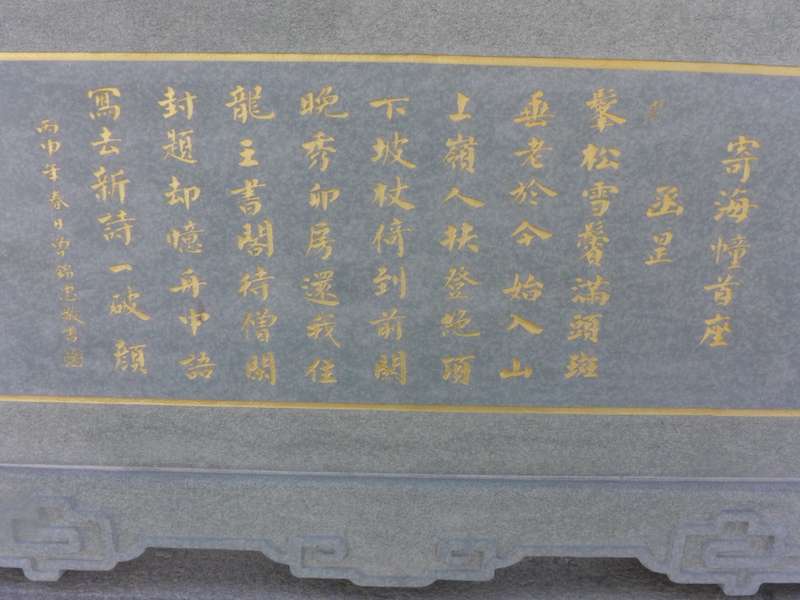 寄海幢首座
函昰
松雪鬢滿頭斑
垂老於今始入山
上嶺人扶登絕頂
下坡杖倚到前關
晚秀卯房還我住
龍王書閣待僧閒
封題却憶舟中語
寫去新詩一破顏
丙申年春日曾錦忠敬書